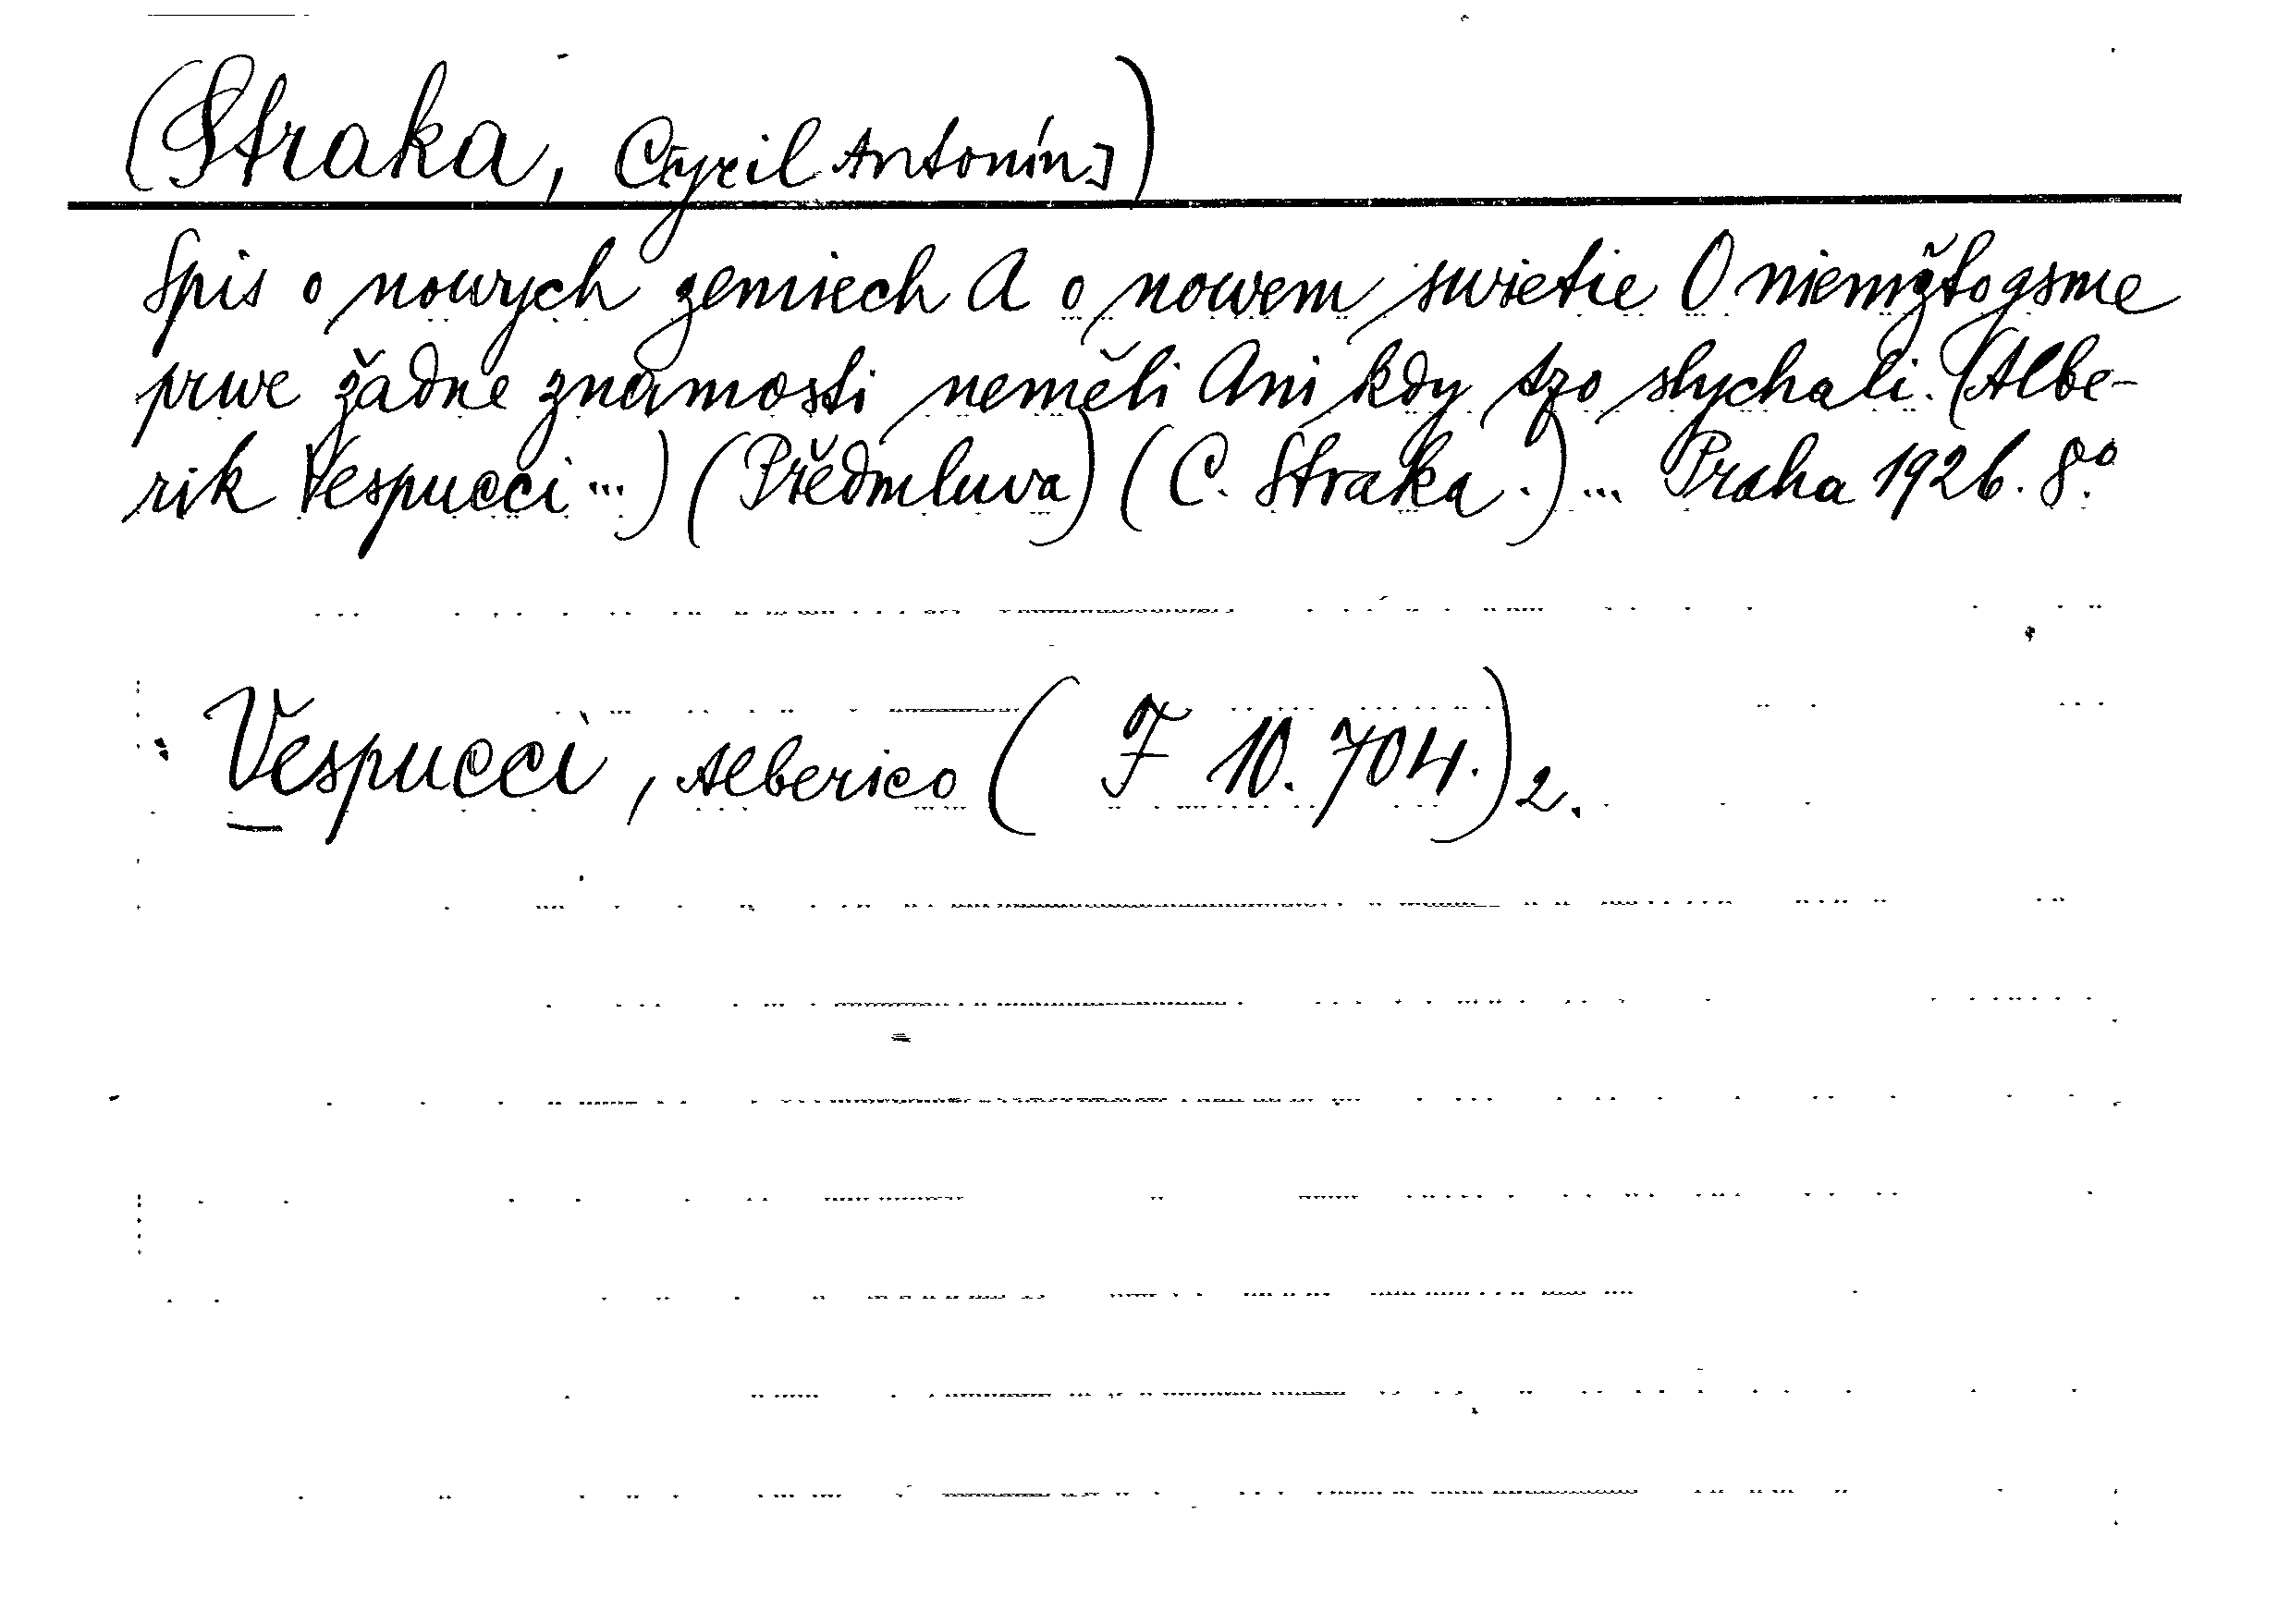 (Straka, C[yril Antonín])
Spis o nowych zemiech A o nowem swietie O niemžto gsme
prwe žadne znamosti neměli Ani kdy tzo slychali. (Albe-
rik Vespucci ...) (Předmluva) (C. Straka.) ... Praha 1926. 8.º
Vespucci, Alberico ( F 10.704.) 2.